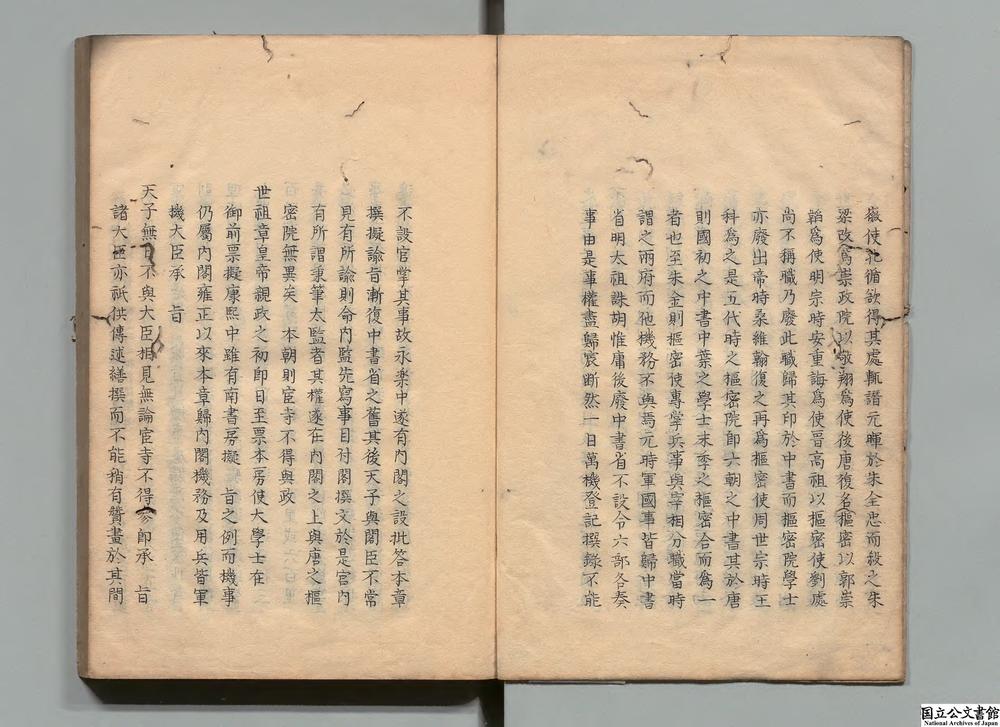 嶽使孔循欲得其處輒譖元暉於朱全忠而殺之朱
梁改爲崇政院以敬翔爲使後唐復名樞密以郭崇
韜爲使明宗時安重誨爲使晉高祖以樞密使劉處
尚不稱職乃廢此職歸其印於中書而樞密院學士
亦廢出帝時桑維翰復之再爲樞密使周世宗時王
科爲之是五代時之樞密院即六朝之中書其於唐
則國初之中書中葉之學士末季之樞密合而爲一
者也至朱金則樞密使專掌兵事與宰相分職當時
謂之兩府而他機務不與焉元時軍國事皆歸中書
省明太祖誅胡惟庸後廢中書省不設令六部各奏
事由是事權盡歸宸断然一日萬機登記撰錄不能
不設官掌其事故永楽中遂有内閣之設批答本章
撰擬諭旨漸復中書省之舊其後天子與閣臣不常
見有所諭則命内監先寫事目付閣撰文於是宮内
有所謂秉筆太監者其權遂在内閣之上與唐之樞
密院無異矣 本朝則宦寺不得與政
世祖章皇帝親政之初即日至票本房使大學士在
御前票擬康熙中雖有南書房擬 旨之例而機事
仍屬内閣雍正以來本章歸内閣機務及用兵皆軍
機大臣承 旨
天子無日不與大臣相見無論宦寺不得參即承 旨
諸大臣亦祇供傳述繕撰而不能稍有贊畫於其間
国立公文書館
National Archives of Japan